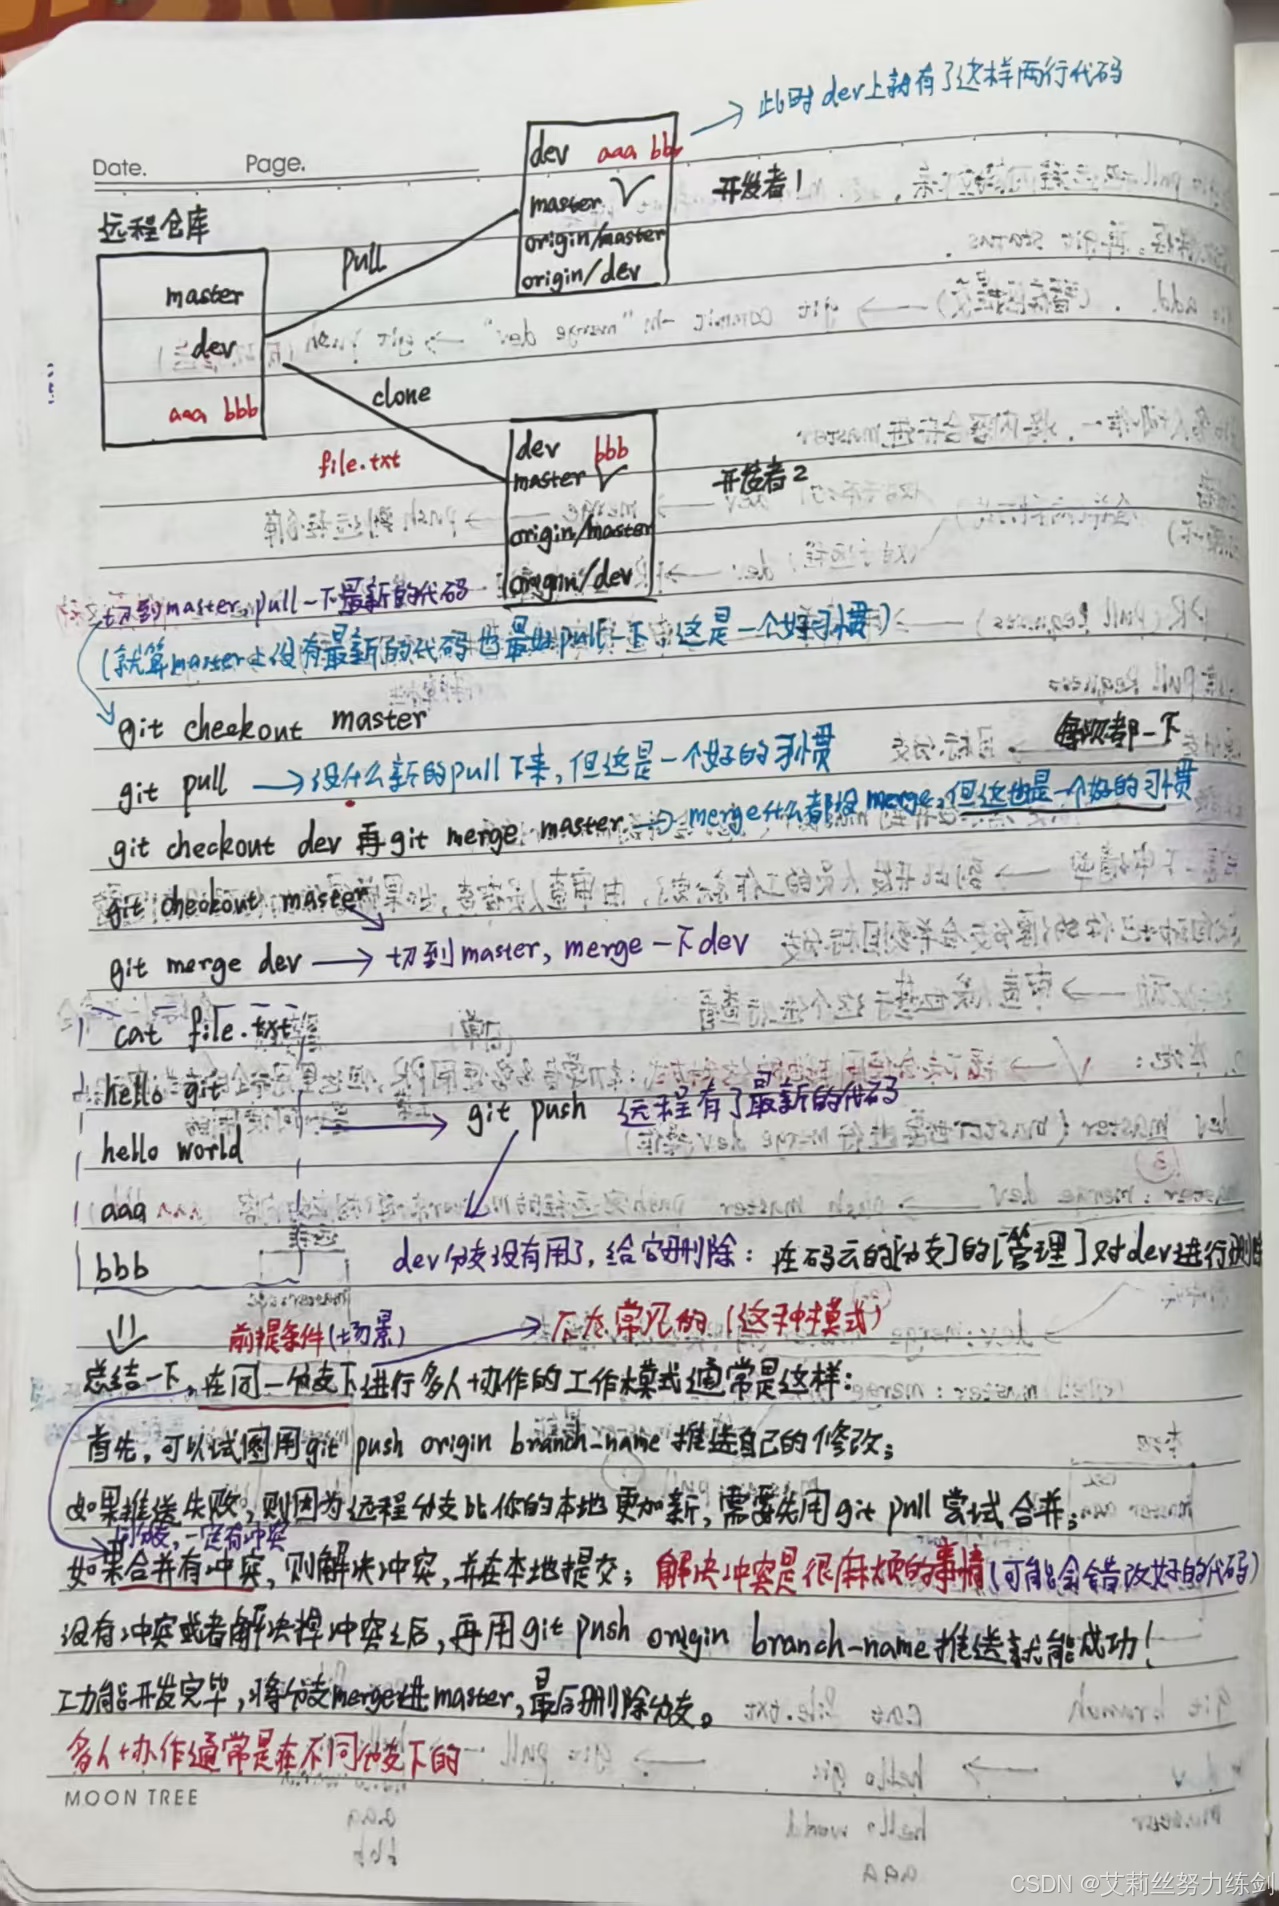 此时dev上就有了这样两行代码
Date. Page.
dev aaa bbb
master √
origin/master
origin/dev
开发者1
远程仓库
pull
master
dev
aaa bbb
clone
file.txt
dev bbb
master √
origin/master
origin/dev
开发者2
切到master,pull一下最新的代码
(就算master上没有最新的代码也最好pull一下,这是一个好习惯)
git checkout master
git pull → 没什么新的pull下来,但这是一个好的习惯
每次都一下
git checkout dev 再git merge master → merge什么都没merge,但这也是一个好的习惯
git checkout master
git merge dev → 切到master, merge一下dev
cat file.txt
hello git
hello world
aaa
bbb
→ git push 远程有了最新的代码
dev分支没有用了,给它删除:在码云的[分支]的[管理]对dev进行删除
前提条件(场景)
常见的(这种模式)
总结一下,在同一分支下进行多人协作的工作模式通常是这样:
首先,可以试图用git push origin branch-name推送自己的修改;
如果推送失败,则因为远程分支比你的本地更加新,需要先用git pull尝试合并;
同分支,一定有冲突
如果合并有冲突,则解决冲突,并在本地提交;解决冲突是很麻烦的事情(可能会错改好的代码)
没有冲突或者解决掉冲突之后,再用git push origin branch-name推送就能成功!
功能开发完毕,将分支merge进master,最后删除分支。
多人协作通常是在不同分支下的
MOON TREE
CSDN @艾莉丝努力练剑